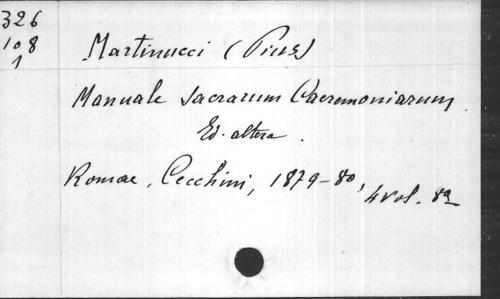 326
108
1
Martinucci (Pius)
Manuale Sacrarum Caeremoniarum
Ed. altera.
Romae, Cecchini, 1879-80, 4 vol. 8º